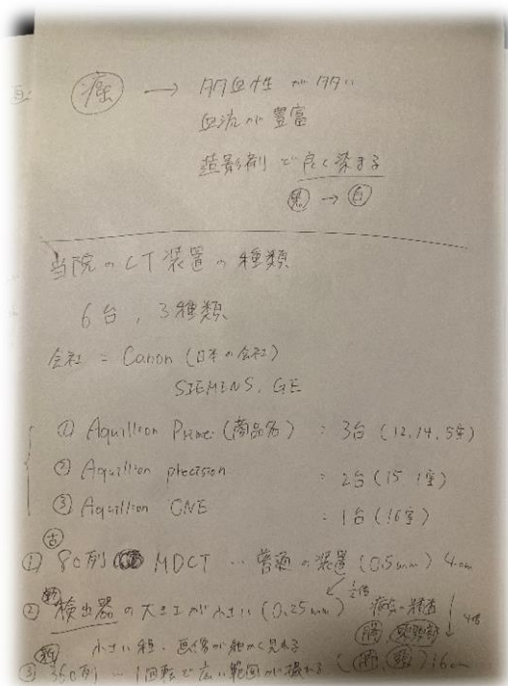 癌 → 多血性が多い
血流が豊富
造影剤で良く染まる
黒 → 白
当院のCT装置の種類
6台, 3種類
会社 = Canon (日本の会社)
SIEMENS, GE
① Aquillion Prime (商品名) : 3台 (12, 14, 5室)
② Aquillion precision : 2台 (15 1室)
③ Aquillion ONE : 1台 (16室)
古
① 80列 MDCT … 普通の装置 (0.5mm) 4cm
1/2倍
② 検出器の大きさが小さい (0.25mm) 4倍
小さい程、画像が細かく見れる
③ 1回転で広い範囲が撮れる 16cm